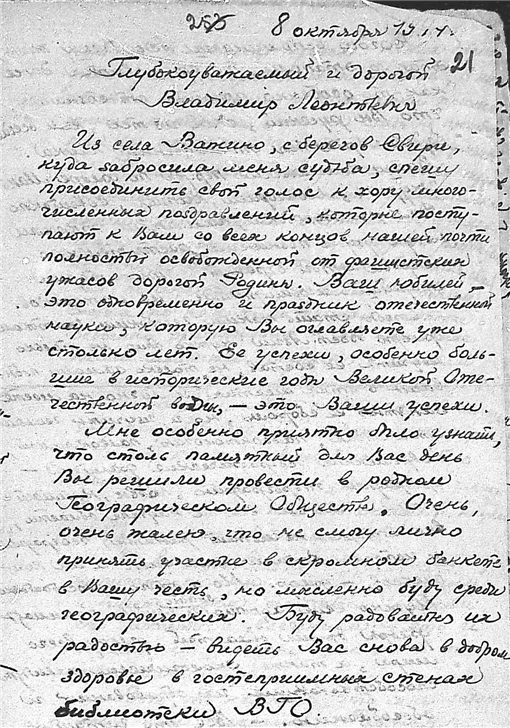 8 октября 19
21
Глубокоуважаемый и дорогой
Владимир Леонтьевич
Из села Важино, с берегов Свири,
куда забросила меня судьба, спешу
присоединить свой голос к хору много-
численных поздравлений, которые посту-
пают к Вам со всех концов нашей почти
полностью освобожденной от фашистских
ужасов дорогой Родины. Ваш юбилей –
это одновременно и праздник отечественной
науки, которую Вы славляете уже
столько лет. Ее успехи, особенно боль-
шие в исторические годы Великой Оте-
чественной войны, – это Ваши успехи.
Мне особенно приятно было узнать,
что столь памятный для Вас день
Вы решили провести в родном
Географическом Обществе. Очень,
очень жалею, что не смогу лично
принять участие в скромном банкете
в Вашу честь, но мысленно буду среди
географических. Буду радоваться их
радостью – видеть Вас снова в добром
здоровье в гостеприимных стенах
библиотеки ВГО.